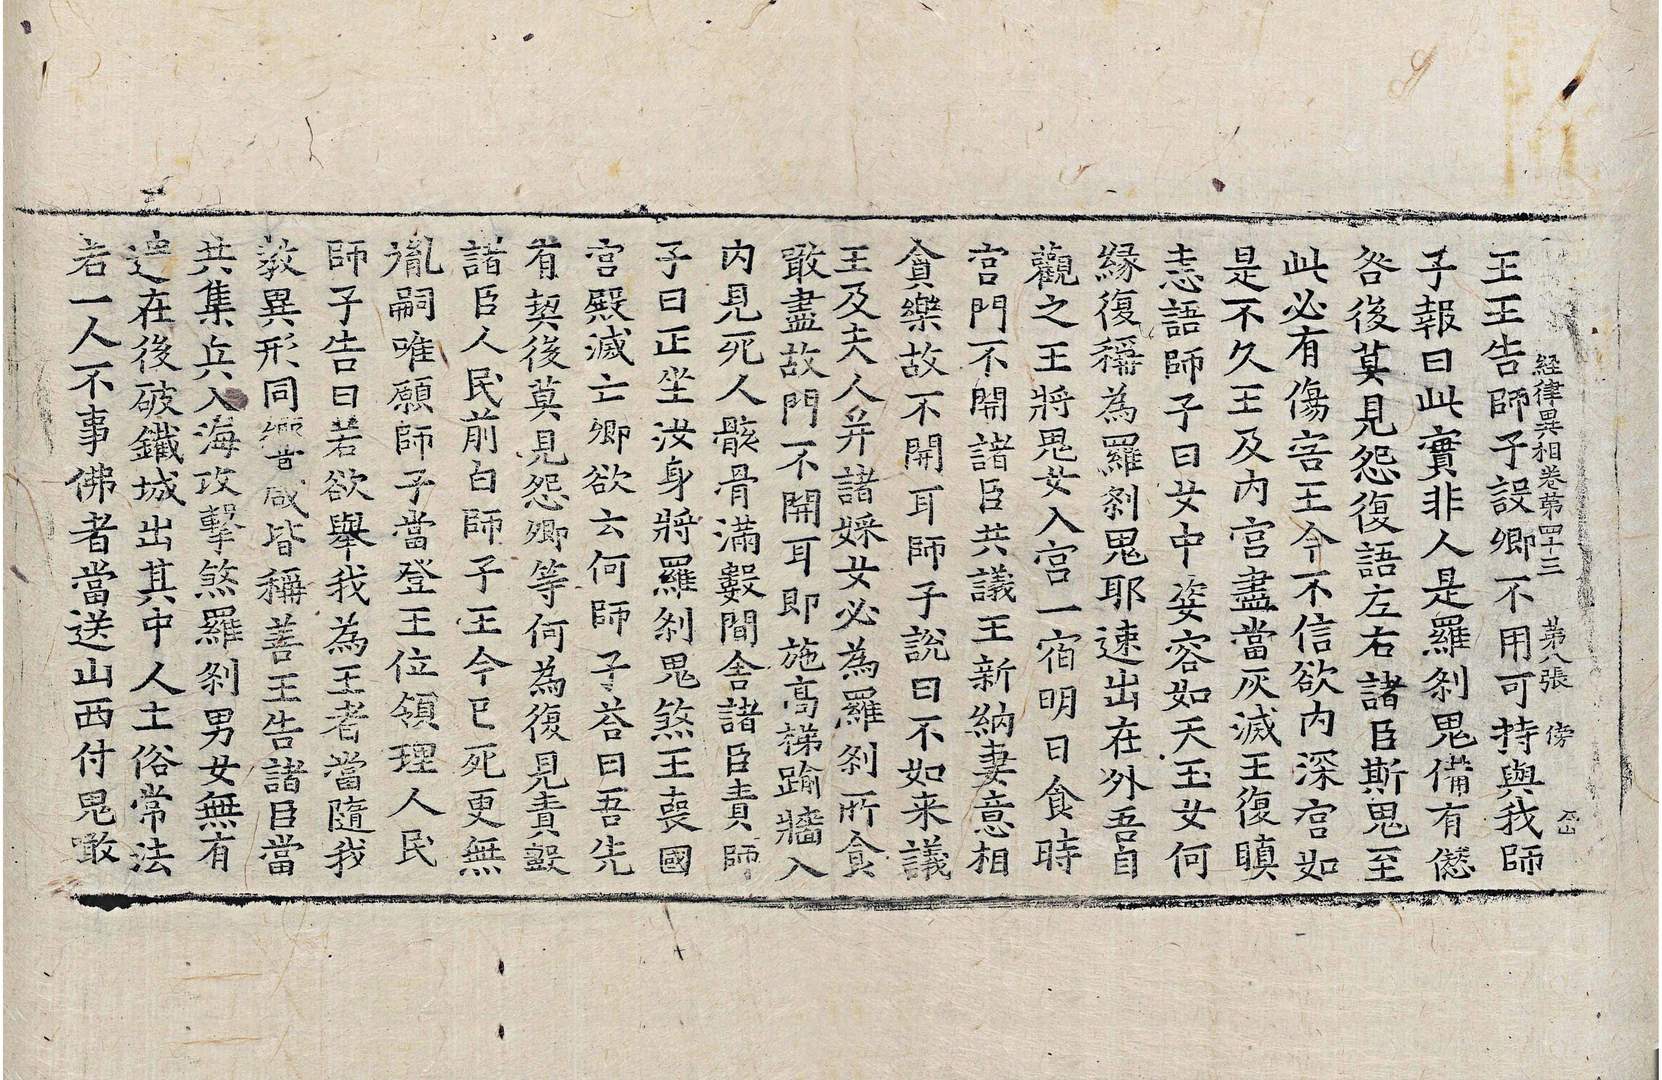 経律異相卷第四十三　第八張　傍
王王告師子設卿不用可持與我師
子報曰此實非人是羅剎鬼備有𠎝
咎後莫見怨復語左右諸臣斯鬼至
此必有傷害王今不信欲內深宮如
是不久王及內宮盡當灰滅王復瞋
恚語師子曰女中姿容如天玉女何
縁復稱為羅剎鬼耶速出在外吾自
觀之王將鬼女入宮一宿明日食時
宮門不開諸臣共議王新納妻意相
貪樂故不開耳師子說曰不如来議
王及夫人并諸婇女必為羅剎所食
噉盡故門不開耳即施高梯踰牆入
內見死人骸骨滿數間舍諸臣責師
子曰正坐汝身將羅剎鬼煞王喪國
宮殿滅亡卿欲云何師子荅曰吾先
有契後莫見怨卿等何為復見責數
諸臣人民前白師子王今已死更無
胤嗣唯願師子當登王位領理人民
師子告曰若欲舉我為王者當隨我
教異形同響咸皆稱善王告諸臣當
共集兵入海攻擊煞羅剎男女無有
遺在後破鐵城出其中人土俗常法
若一人不事佛者當送山西付鬼噉